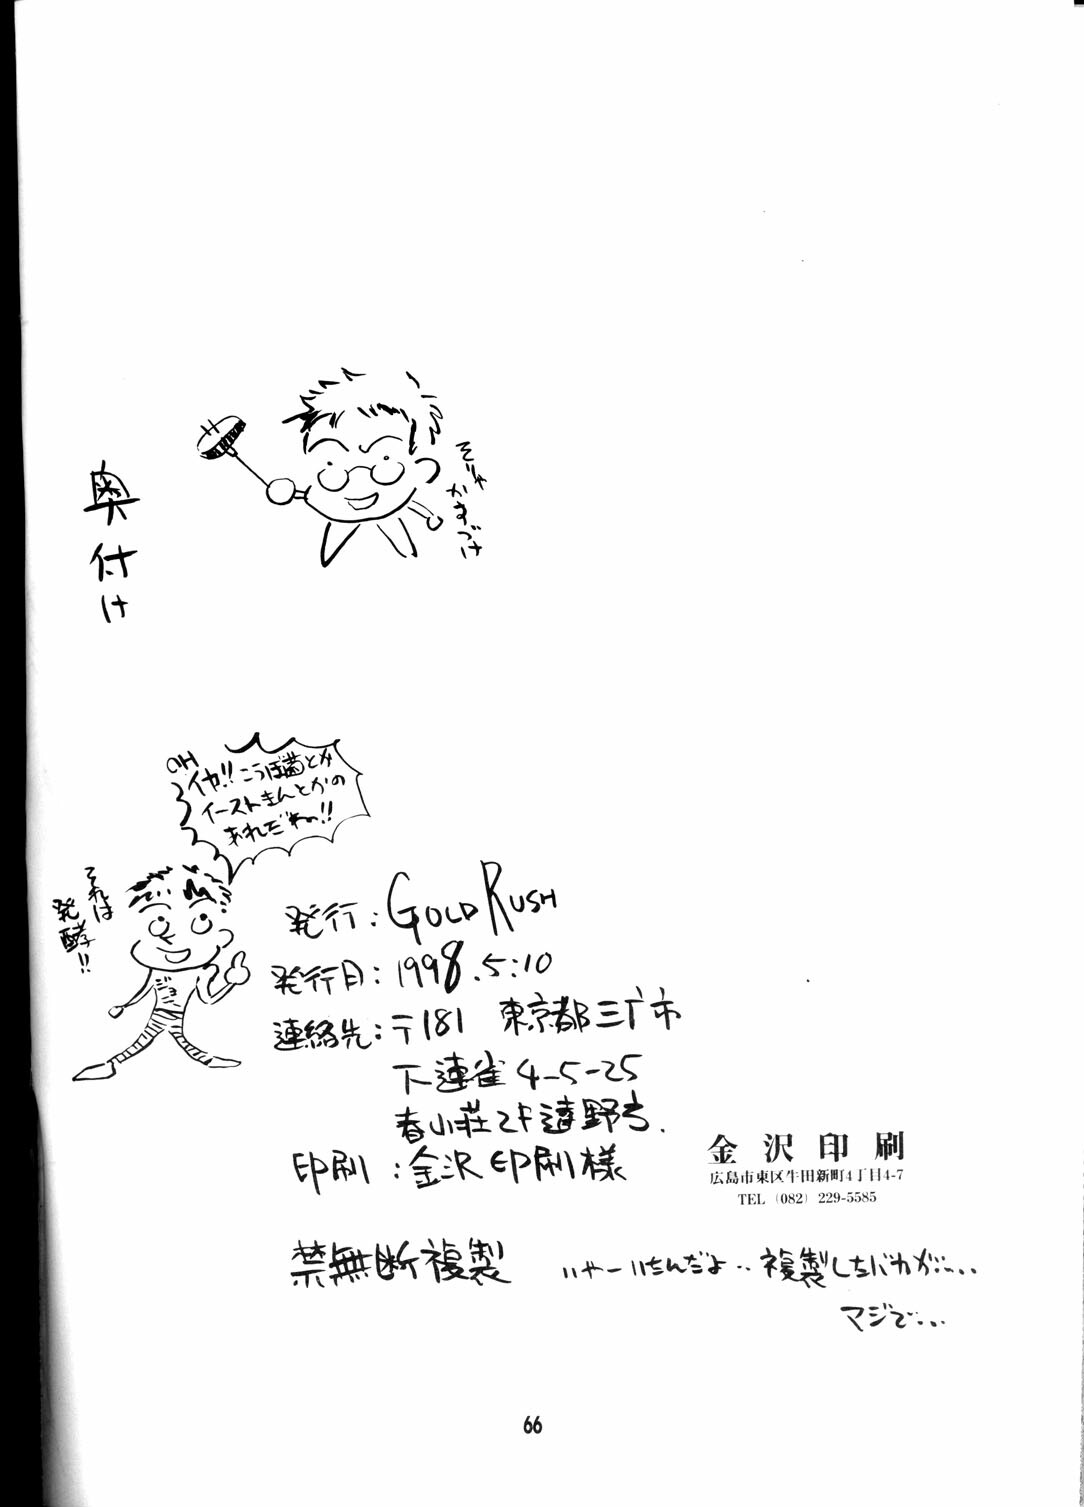 奥付け
そりゃ
かすづけ
OH
イヤ!!こうぼ菌とか
イーストきんとかの
あれだねっ!!
それは
発酵!!
ジョ
発行:GOLD RUSH
発行日:1998.5.10
連絡先:〒181 東京都三鷹市
下連雀4-5-25
春山荘2F遠野方
印刷:金沢印刷様
金沢印刷
広島市東区牛田新町4丁目4-7
TEL (082) 229-5585
禁無断複製 いやーいたんだよ‥複製したバカが‥‥
マジで…
66